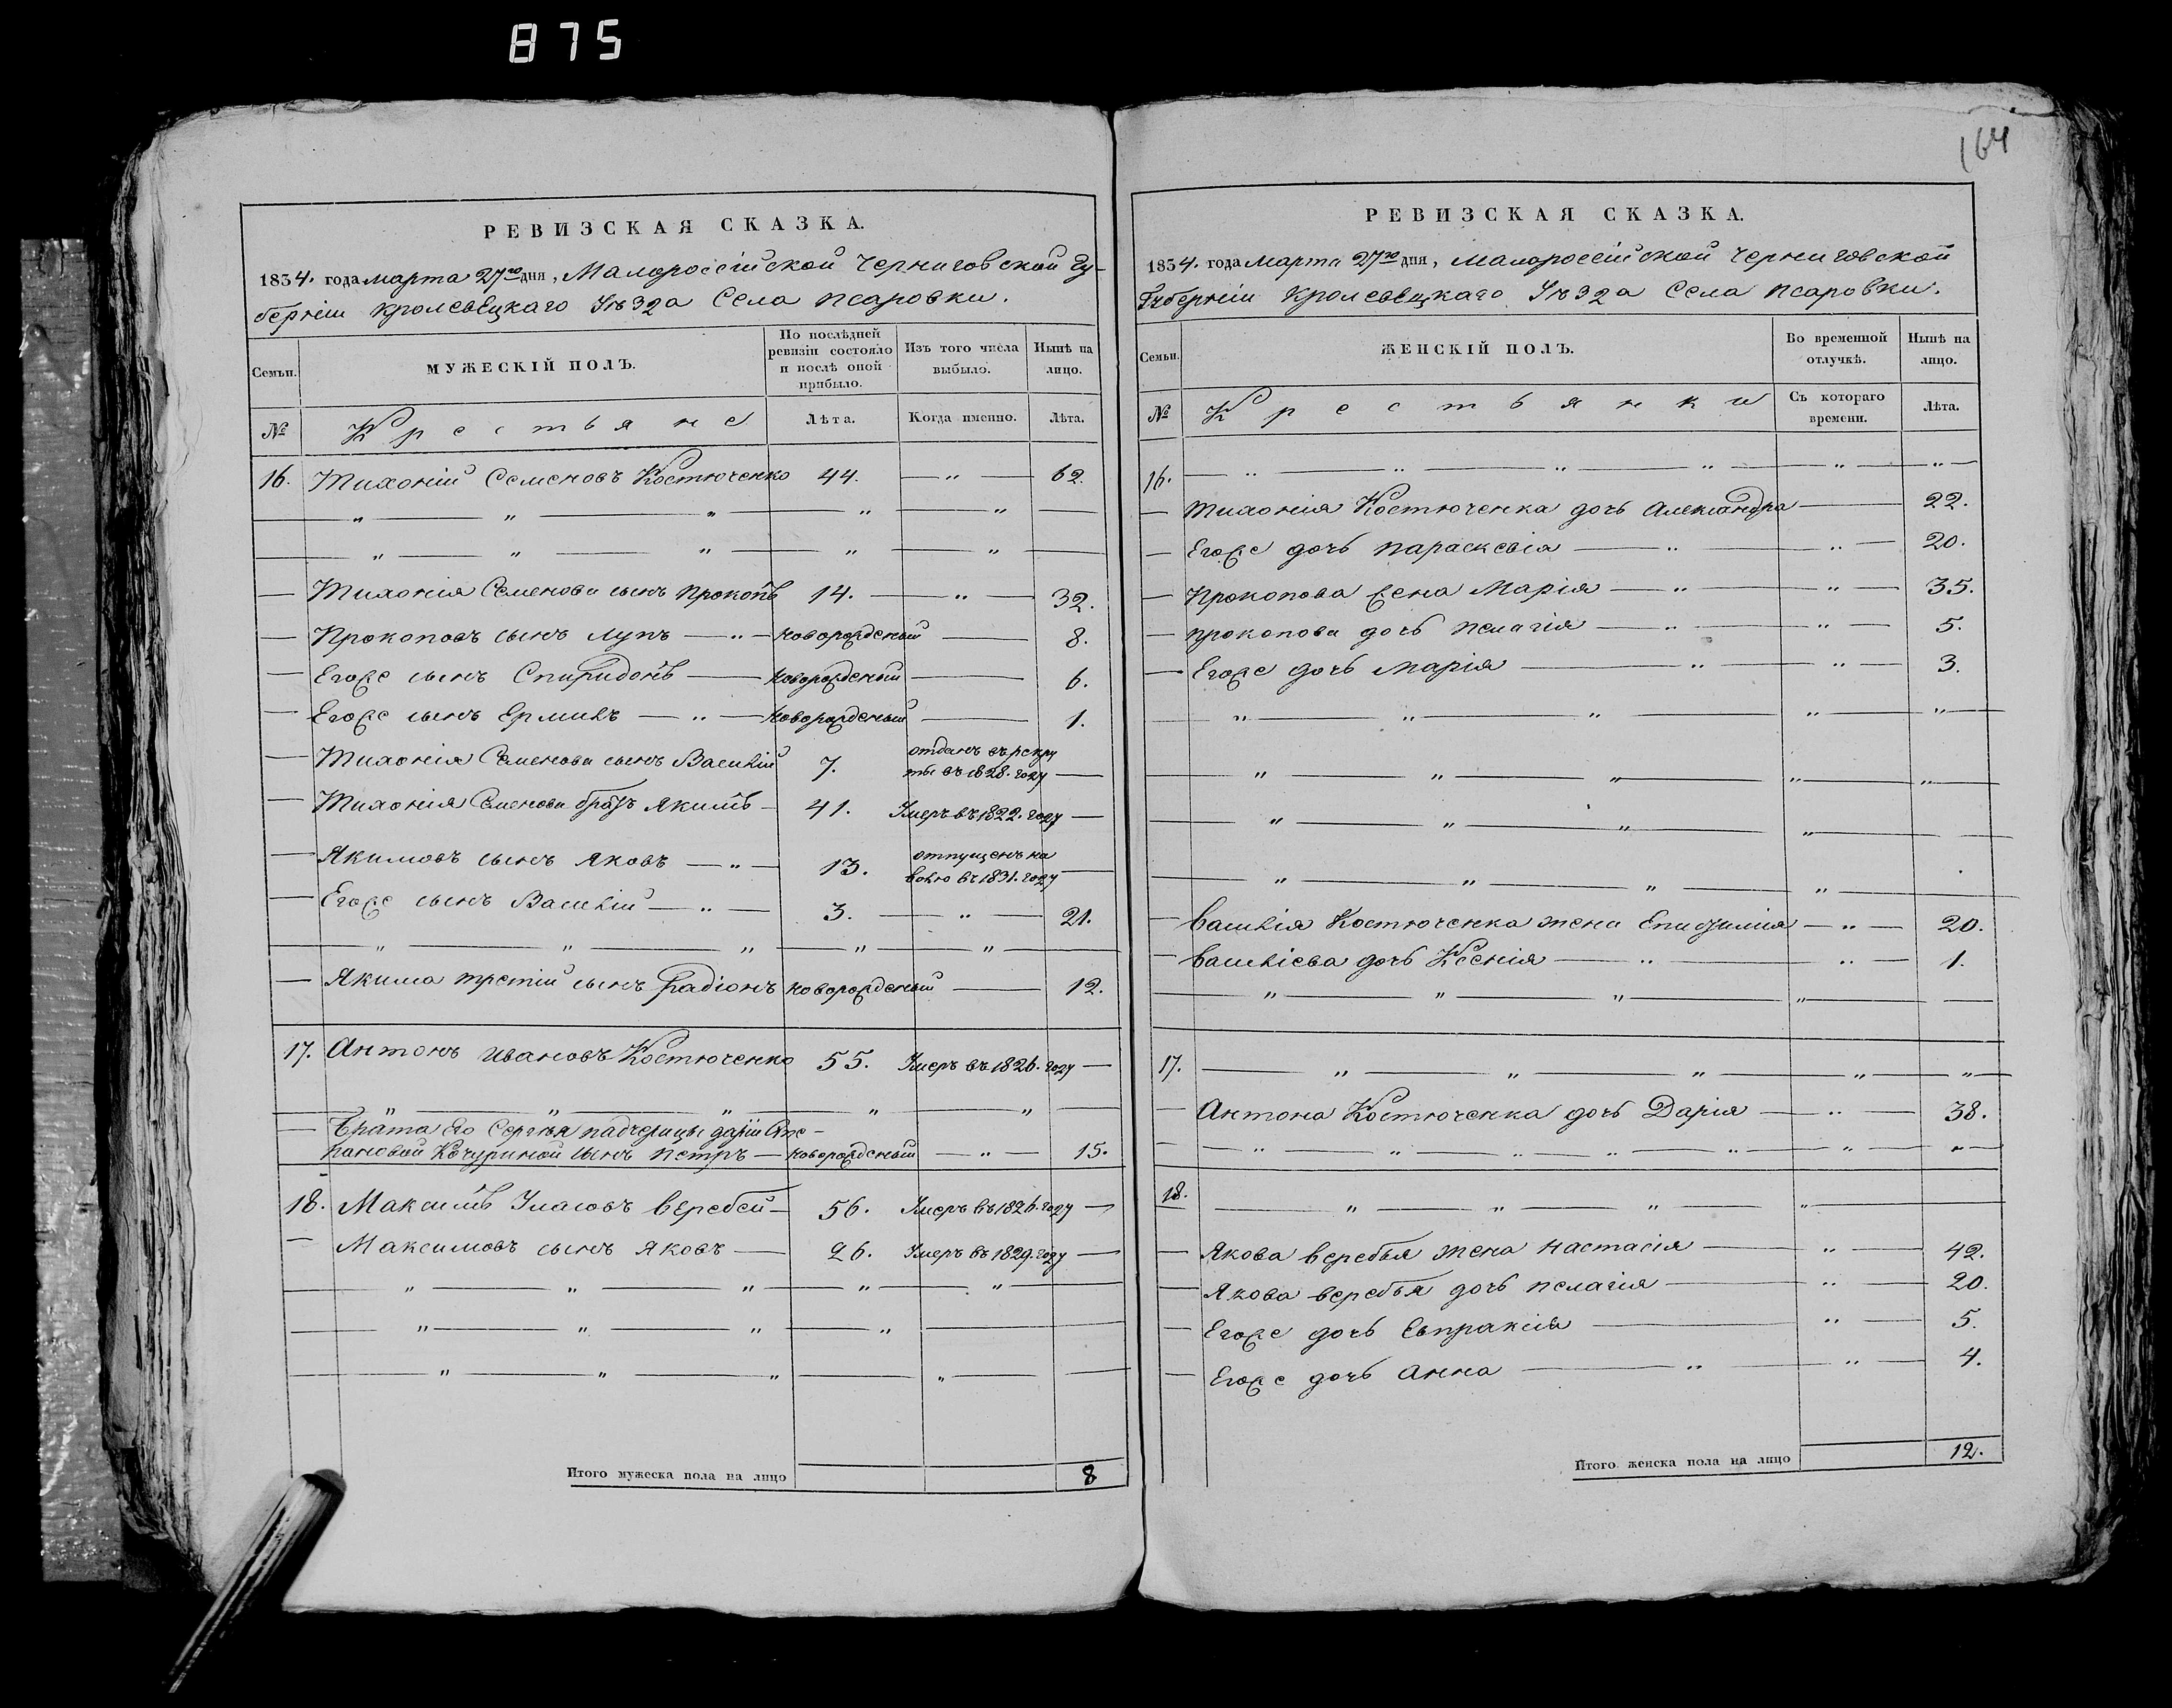 875
164
РЕВИЗСКАЯ СКАЗКА.
1834. года марта 27го дня, Малороссійской Черниговской Гу-
берніи Кролевецкаго Уѣзда Села Псаровки.
Семьи. МУЖЕСКІЙ ПОЛЪ. По послѣдней ревизіи состояло и послѣ оной прибыло. Изъ того числа выбыло. Нынѣ на лицо.
№ Крестьяне Лѣта. Когда именно. Лѣта.
16. Тихоній Семеновъ Костюченко 44. — " — 62.
— " — " — " — " — " —
— " — " — " — " — " —
— Тихонія Семенова сынъ Прокопъ 14. — " — 32.
— Прокоповъ сынъ Лупъ — " — новорожденый — 8.
— Егоже сынъ Спиридонъ — новорожденый — 6.
— Егоже сынъ Ермилъ — " — новорожденый — 1.
— Тихонія Семенова сынъ Василій 7. отданъ въ рекру
ты въ 1828. году —
— Тихонія Семенова братъ Якимъ — 41. Умеръ въ 1822. году —
— Якимовъ сынъ Яковъ — " — 13. отпущенъ на
волю въ 1831. году —
— Егоже сынъ Василій — " — 3. — " — 21.
— " — " — " — " — " —
— Якима третій сынъ Радіонъ новорожденый — 12.
17. Антонъ Ивановъ Костюченко 55. Умеръ въ 1826. году —
— " — " — " — " — " —
— Брата его Сергѣя падчерицы Даріи Сте-
пановой Кочуриной сынъ Петръ — новорожденый — " — 15.
18. Максимъ Уласовъ Веребей — 56. Умеръ въ 1826. году —
— Максимовъ сынъ Яковъ — 26. Умеръ въ 1829. году —
— " — " — " — " — " —
— " — " — " — " —
— " — " — " — " —
Итого мужеска пола на лицо 8
РЕВИЗСКАЯ СКАЗКА.
1834. года Марта 27го дня, Малороссійской Черниговской
Губерніи Кролевецкаго Уѣзда Села Псаровки.
Семьи. ЖЕНСКІЙ ПОЛЪ. Во временной отлучкѣ. Нынѣ на лицо.
№ Крестьянки Съ котораго времени. Лѣта.
16. — " — " — " — " — " — " —
— Тихонія Костюченка дочь Александра — 22.
— Егоже дочь Параскевія — " — " — 20.
— Прокопова жена Марія — " — " — 35.
— Прокопова дочь Пелагія — " — " — 5.
— Егоже дочь Марія — " — " — 3.
— " — " — " — " — " —
— " — " — " — " — " —
— " — " — " — " —
— " — " — " — " —
— Василія Костюченка жена — " — 20.
— Василіева дочь Ксенія — " — " — 1.
— " — " — " — " —
17. — " — " — " — " — " —
— Антона Костюченка дочь Дарія — " — 38.
— " — " — " — " — " — " — " —
18. — " — " — " — " —
— Якова Веребья жена Настасія — " — 42.
— Якова Веребья дочь Пелагія — " — 20.
— Егоже дочь Евпраксія — " — 5.
— Егоже дочь Анна — " — " — 4.
Итого женска пола на лицо 12.